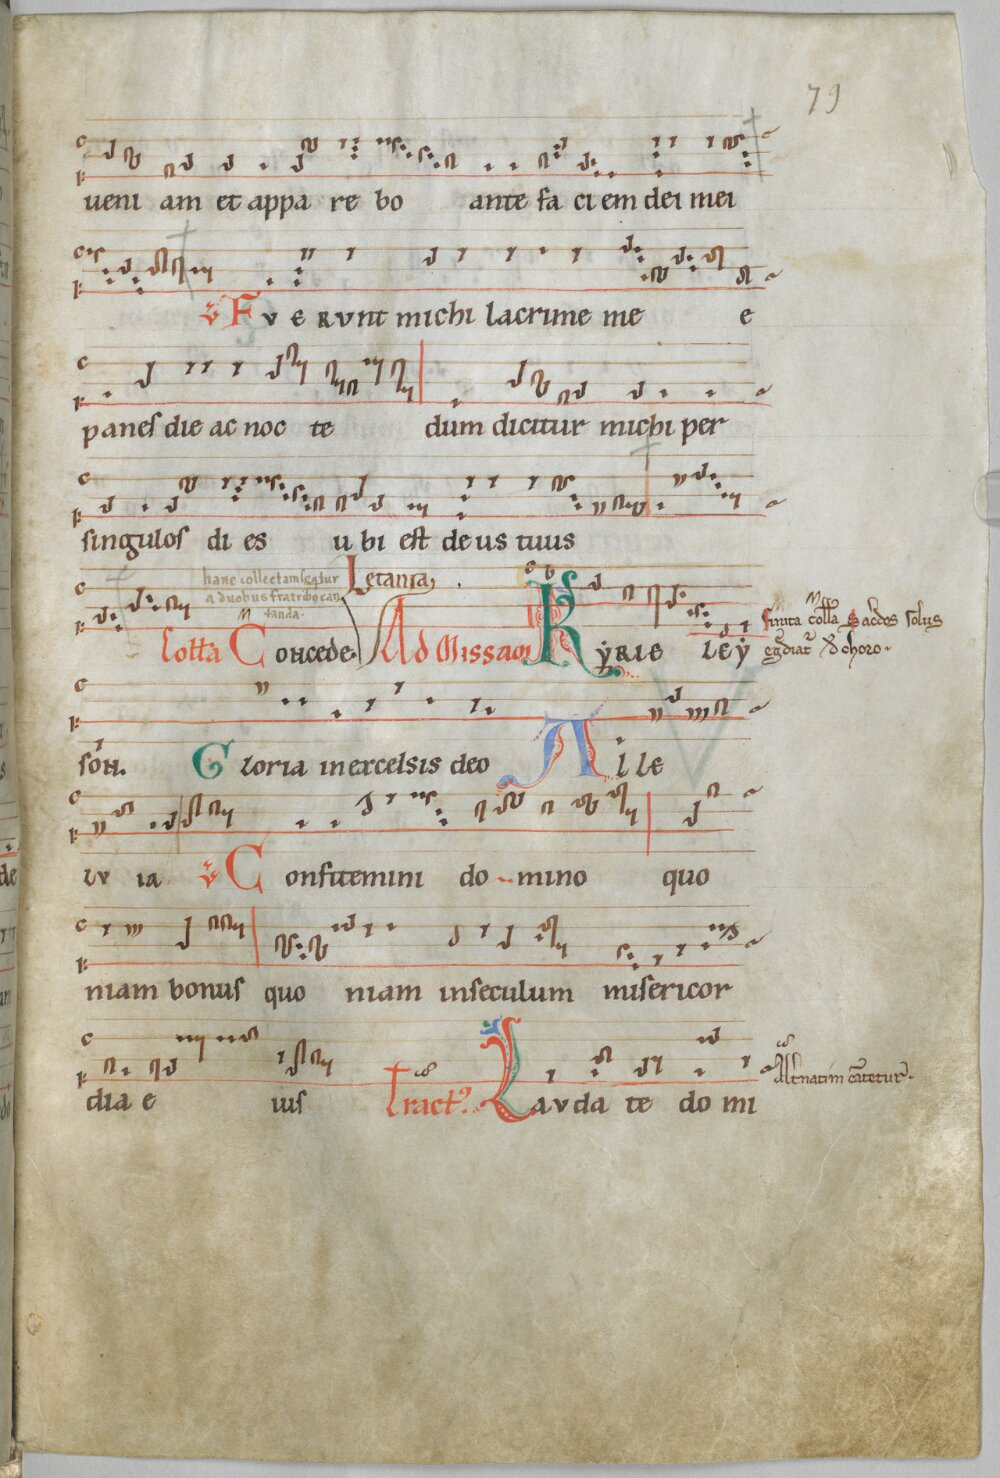 79
ueni am et appa re bo ante fa ci em dei mei
Fu e runt michi lacrime me e
panes die ac noc te dum dicitur michi per
singulos di es u bi est deus tuus
hanc collectam
a duobus fratribus can
tanda.
Letania,
Coll̄a Concede. Ad Missam Kyrie ley
finita coll̄a Sacerdos solus
choro.
son. Gloria in excelsis deo Al le
lu ia Confitemini do mino quo
niam bonus quo niam in seculum misericor
dia e ius Tract. Lauda te do mi